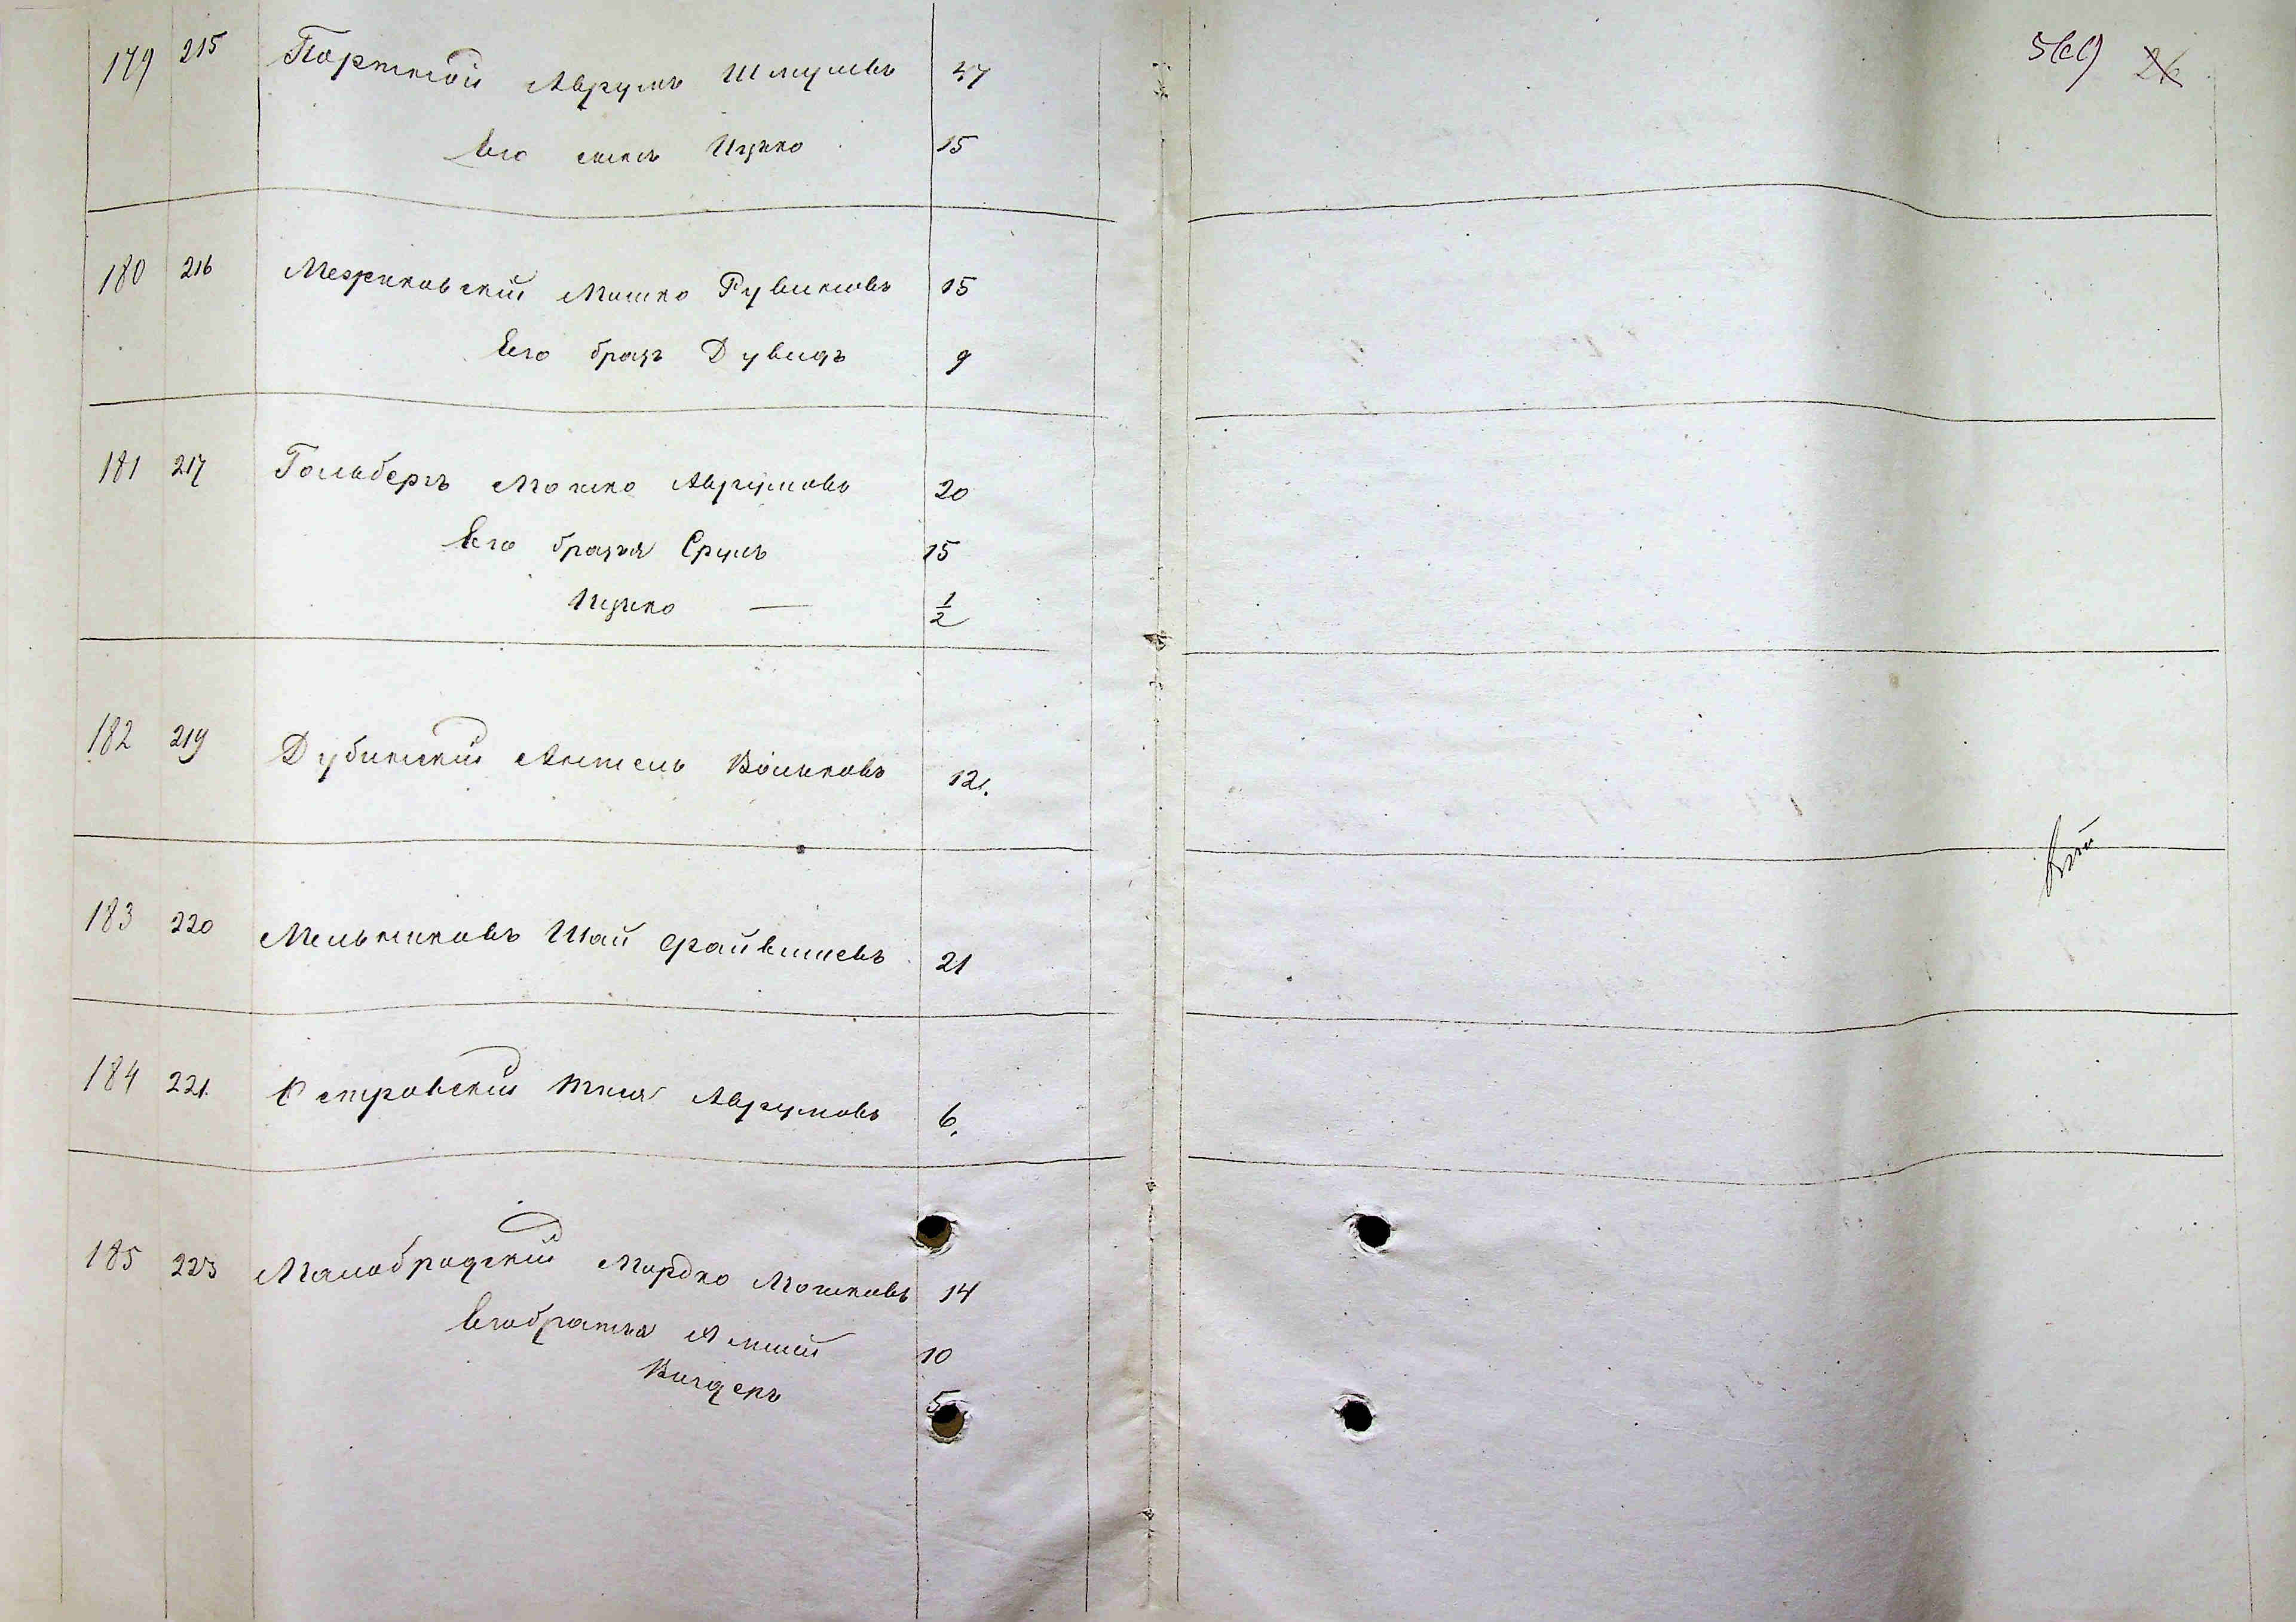 179 215 Портной Аврумъ Шмулевъ 47
Его сынъ Ицко 15
180 216 Межиковскій Мошко Рувиновъ 15
Его братъ Дувидъ 9
181 217 Гольбергъ Мошко Аврумовъ 20
Его братья Сруль 15
Ицко — 1/2
182 219 Дубинскій Аншель Вольковъ 12.
183 220 Мельниковъ Шая Файвишевъ 21
184 221. Островскій Аврумовъ 6.
185 223 Малобродскій Мордко Мошковъ 14
Его братья 10
5
26